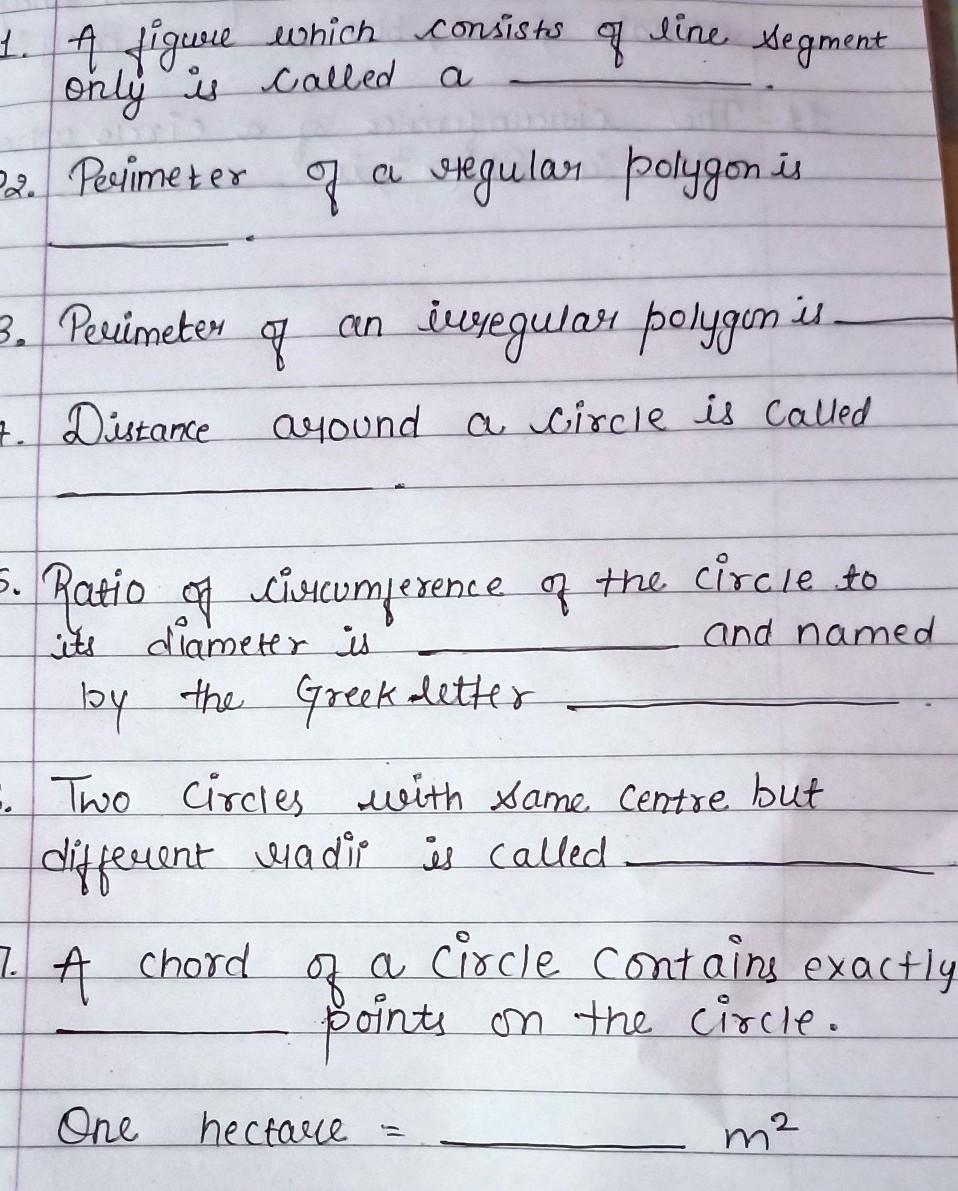 1. A figure which consists of line segment
only is called a ________.
2. Perimeter of a regular polygon is
________.
3. Perimeter of an irregular polygon is ________
4. Distance around a circle is called
________.
5. Ratio of circumference of the circle to
its diameter is ________ and named
by the Greek letter ________.
Two circles with same centre but
different radii is called ________
7. A chord of a circle contains exactly
________ points on the circle.
One hectare = ________ m²